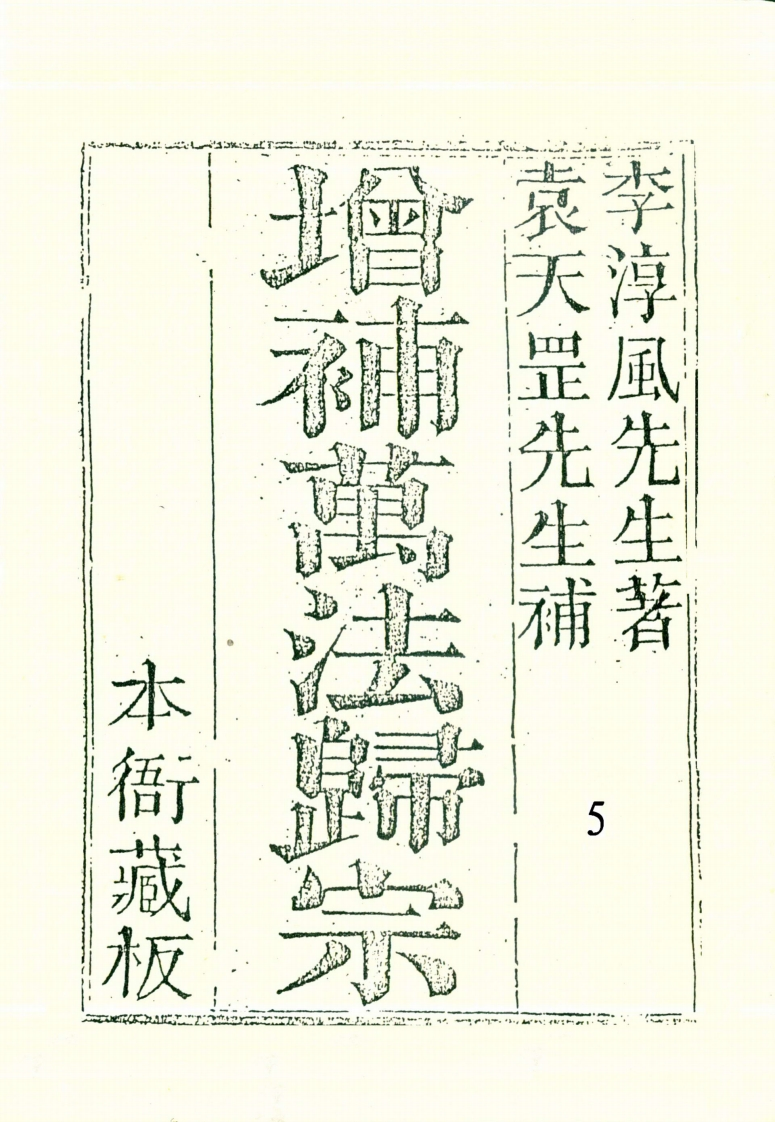 李淳風先生著
袁天罡先生補
增補萬法歸宗
本衙藏板
5